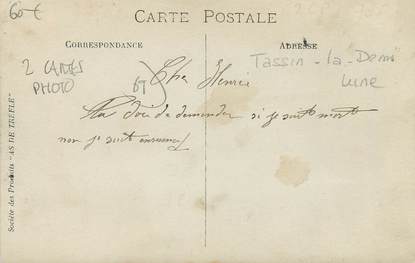 60€
CARTE POSTALE
CORRESPONDANCE
ADRESSE
2 CARTES
PHOTO
69
Tassin-la-Demi
Lune
Cher Henri
de demander si je suis mort
non je suis
Société des Produits "AS DE TREFLE"